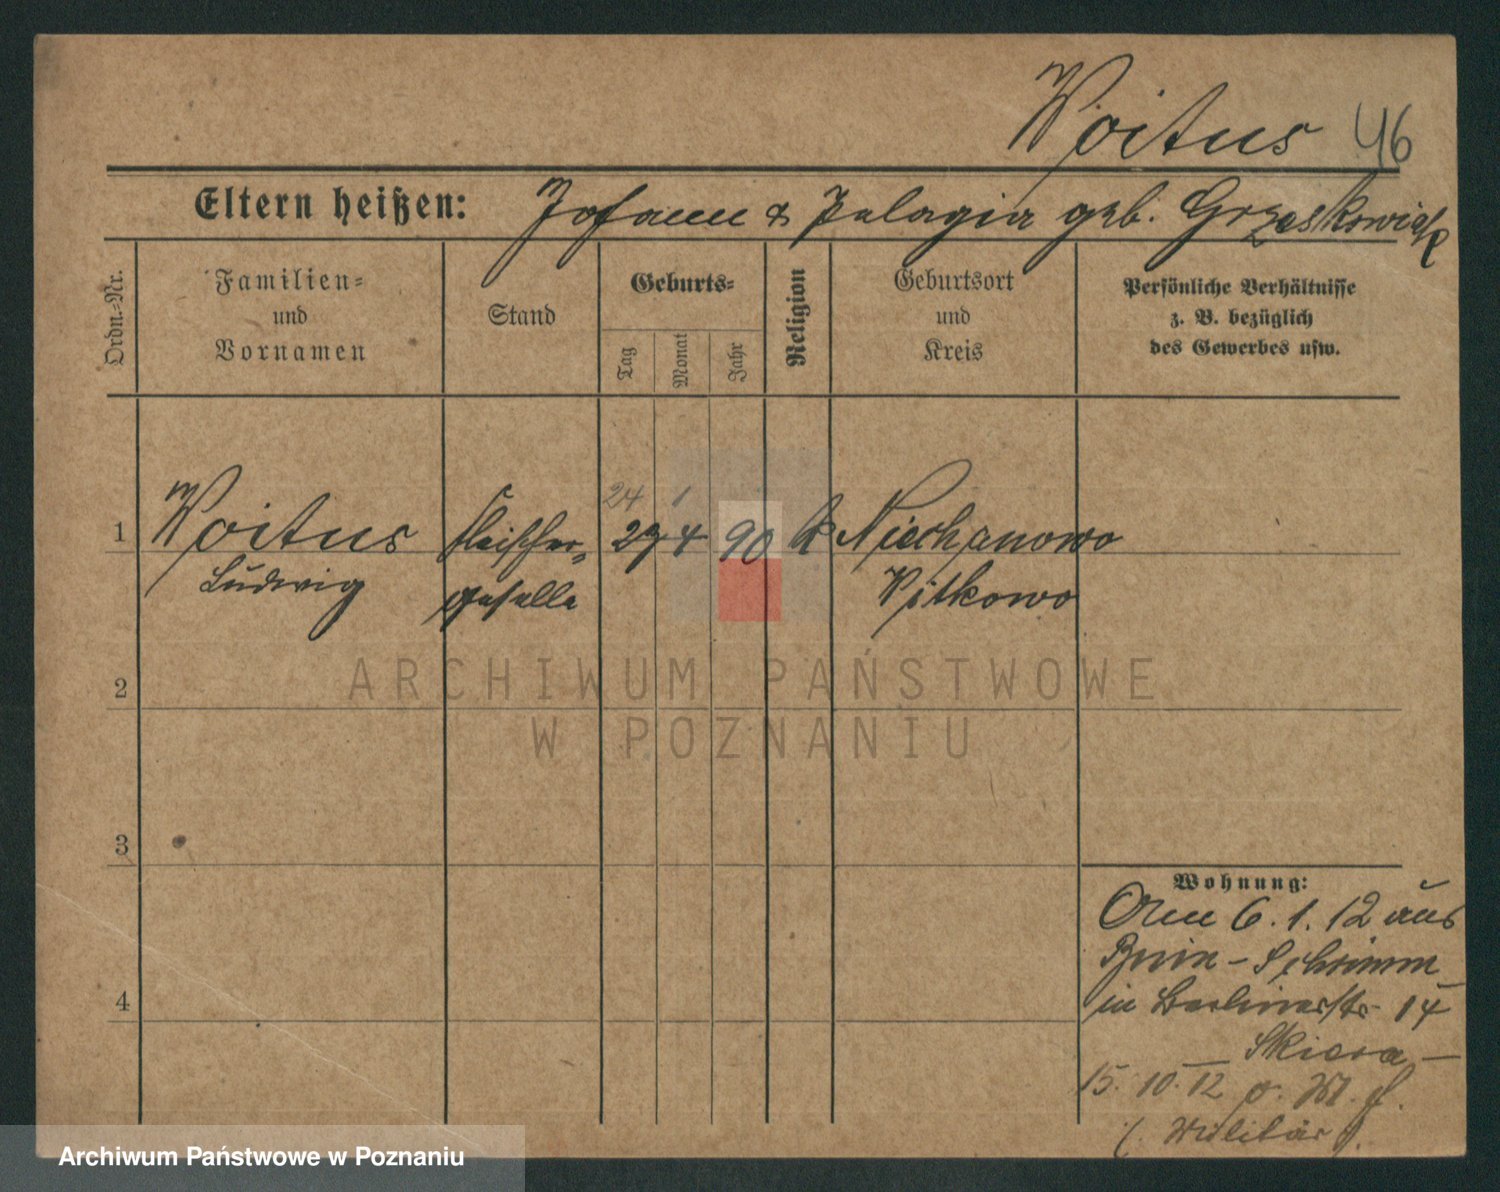 Woitus 46
Eltern heißen: Johann & Pelagia geb. Grzeskowiak
Ordn.-Nr.
Familien-
und
Vornamen
Stand
Geburts-
Tag
Monat
Jahr
Religion
Geburtsort
und
Kreis
Persönliche Verhältnisse
z. B. bezüglich
des Gewerbes usw.
24 1
1 Woitus Fleischer- 29 4 90 k Niechanowo
Ludwig geselle Witkowo
2
ARCHIWUM PAŃSTWOWE
W POZNANIU
3
Wohnung:
6.1.12 aus
Bnin - Schrimm
4
in Berlinerstr. 14
Skiera
15.10.12
(Militär).
Archiwum Państwowe w Poznaniu